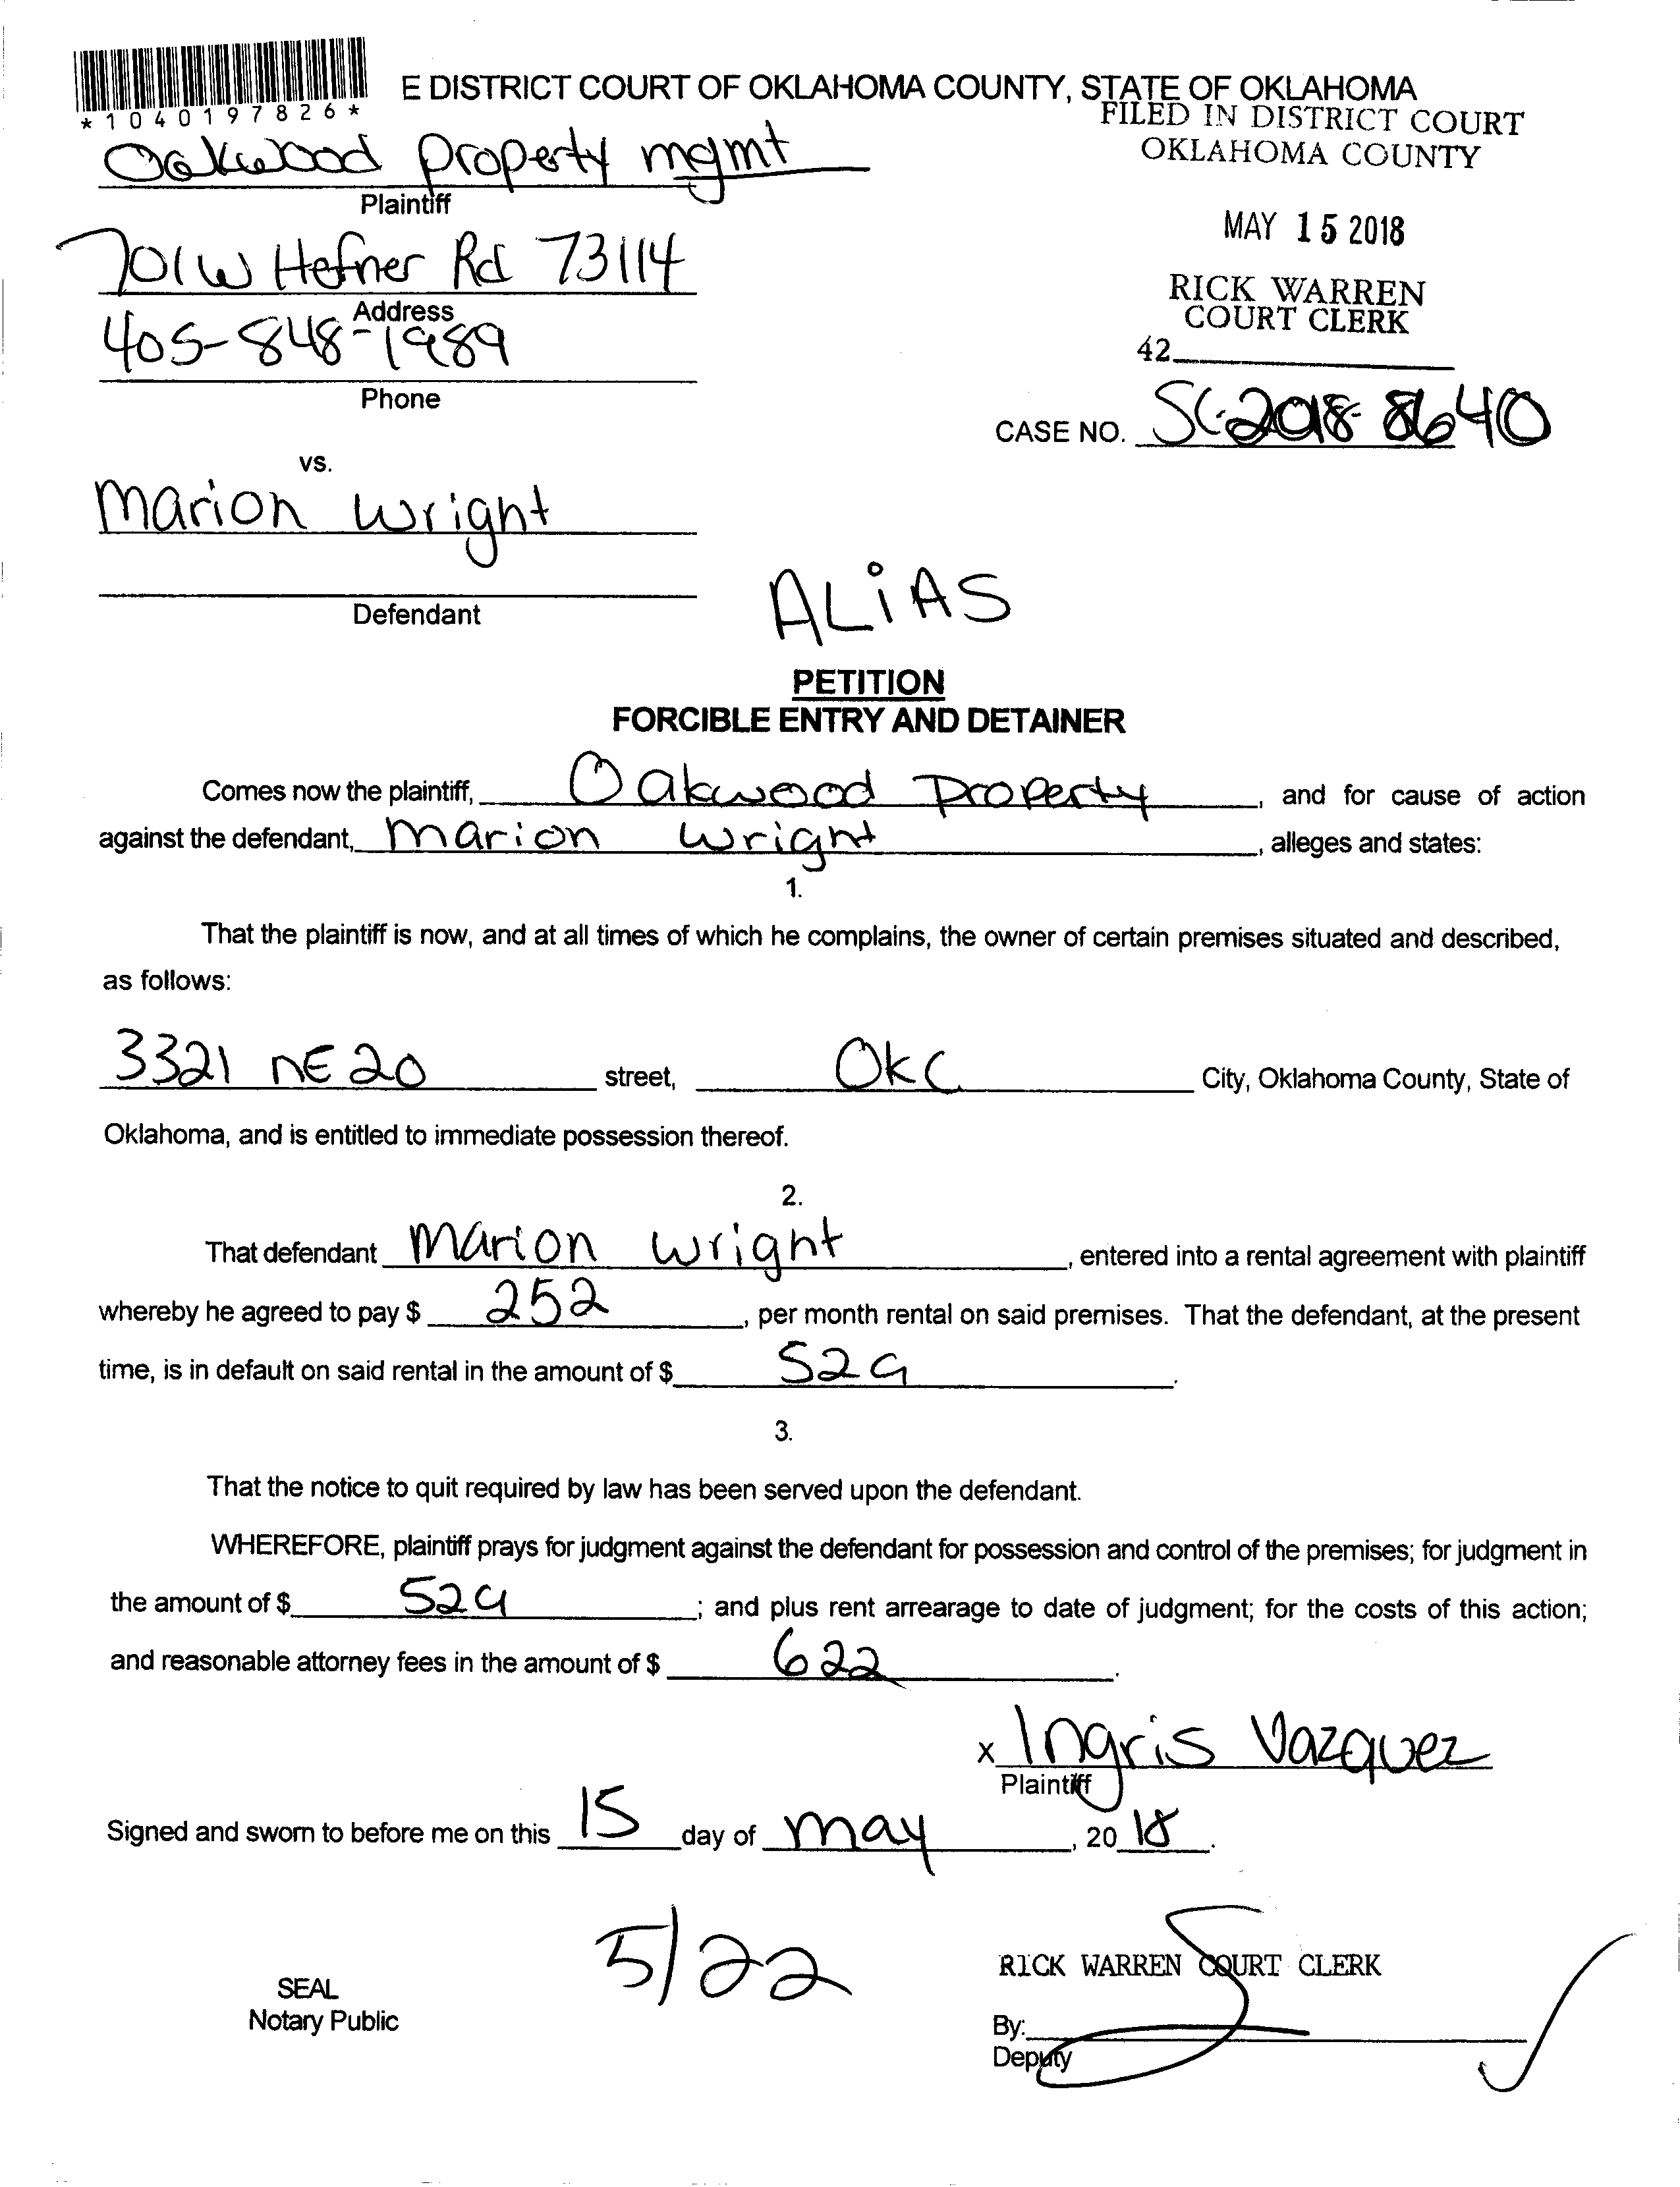 *1040197826*
E DISTRICT COURT OF OKLAHOMA COUNTY, STATE OF OKLAHOMA
FILED IN DISTRICT COURT
OKLAHOMA COUNTY
Oakwood property mgmt
Plaintiff
MAY 15 2018
701 W Hefner Rd 73114
Address
RICK WARREN
COURT CLERK
405-848-1989
42
Phone
CASE NO. SC-2018-8640
vs.
Marion Wright
Defendant
ALiAS
PETITION
FORCIBLE ENTRY AND DETAINER
Comes now the plaintiff, Oakwood Property, and for cause of action
against the defendant, Marion Wright, alleges and states:
1.
That the plaintiff is now, and at all times of which he complains, the owner of certain premises situated and described,
as follows:
3321 NE 20 street, OKC City, Oklahoma County, State of
Oklahoma, and is entitled to immediate possession thereof.
2.
That defendant Marion Wright, entered into a rental agreement with plaintiff
whereby he agreed to pay $ 252, per month rental on said premises. That the defendant, at the present
time, is in default on said rental in the amount of $ 529.
3.
That the notice to quit required by law has been served upon the defendant.
WHEREFORE, plaintiff prays for judgment against the defendant for possession and control of the premises; for judgment in
the amount of $ 529; and plus rent arrearage to date of judgment; for the costs of this action;
and reasonable attorney fees in the amount of $ 622.
x Ingris Vazquez
Plaintiff
Signed and sworn to before me on this 15 day of may, 20 18.
5/22
RICK WARREN COURT CLERK
SEAL
Notary Public
By:
Deputy